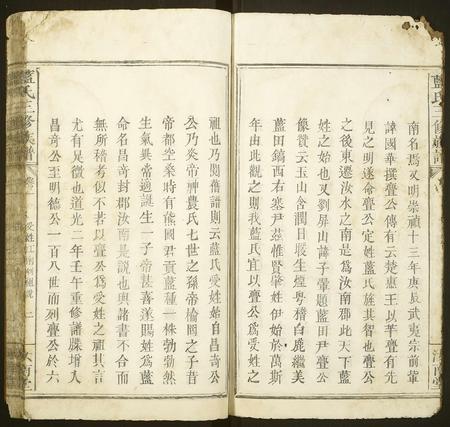 南名焉又明崇禎十三年庚辰武夷宗前輩
諱國華撰亹公傳有云楚惠王以華亹有先
見之明遂命亹公定姓藍氏旌其智也亹公
之後東遷汝水之南是為汝南郡此天下藍
姓之始也又劉屏山諱子翬題藍田尹亹公
像贊云玉山含潤日股生煙粵稽白鹿繼美
藍田鎬西右塞尹茲惟賢肇姓伊始於萬斯
年由此觀之則我藍氏宜以亹公為受姓之
祖也乃閱舊譜則云藍氏受姓始自昌奇公
公乃炎帝神農氏七世之孫帝榆罔之子昔
帝都空桑時有熊國君貢藍種一株勃勃然
生氣異常適誕生一子帝甚喜遂賜姓為藍
命名昌奇封郡汝南是說也與諸書不合而
無所稽考似不若以亹公為受姓之祖其言
尤有足徵也道光二年壬午重修譜牒增入
昌奇公至明德公一百八世而列亹公於六
藍氏三修族譜
二
汝南堂